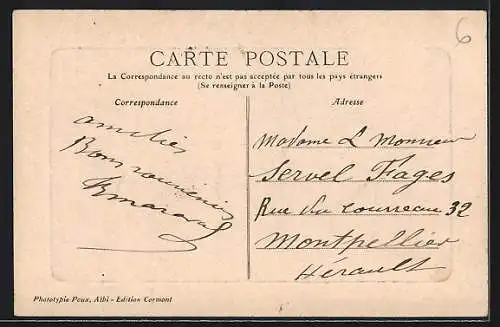 6
CARTE POSTALE
La Correspondance au recto n'est pas acceptée par tous les pays étrangers
(Se renseigner à la Poste)
Correspondance
Adresse
amitiés
Bon souvenirs
Madame & Monsieur
Servel Fages
Rue du courreau 32
Montpellier
Hérault
Phototypie Poux, Albi - Edition Cormont